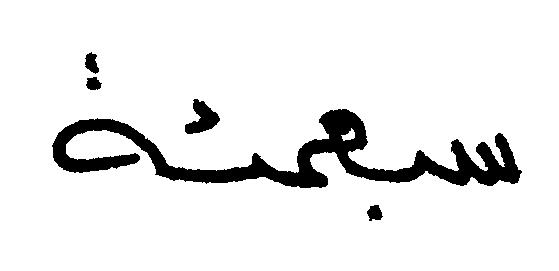 سبعمئة